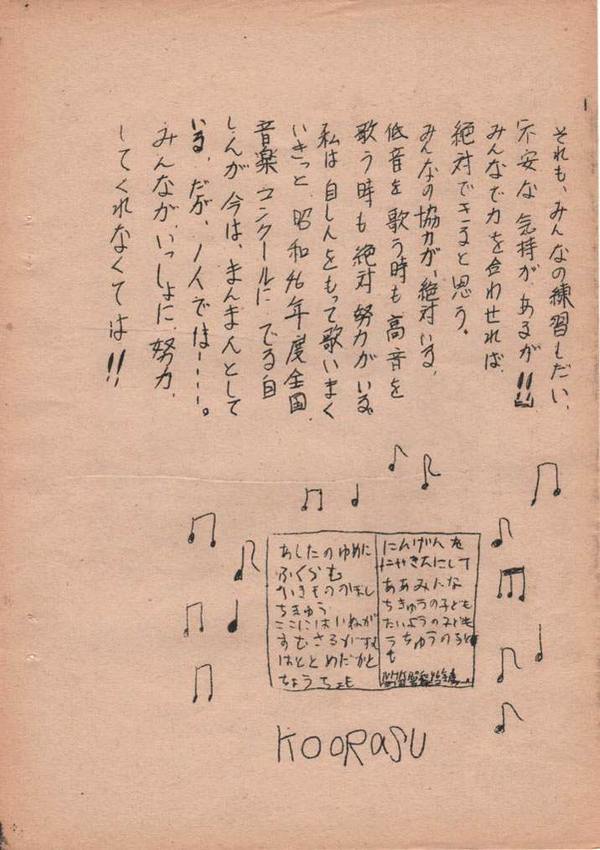 それも、みんなの練習しだい、
不安な気持が、あるが!!
みんなで力を合わせれば、
絶対できると思う。
みんなの協力が、絶対いる。
低音を歌う時も高音を
歌う時も絶対努力がいる。
私は自しんをもって歌いまく
いきっと、昭和46年度全国
音楽コンクールにでる自
しんが今は、まんまんとして
いる。だが、1人では……。
みんなが、いっしょに、努力、
してくれなくては!!
あしたのゆめに
ふくらむ
いきもののほし
ちきゅう
ここにはいねが
すむさるがすむ
はととめだかと
ちょうちょも
にんげんを
なかまにして
ああみんな
ちきゅうの子ども
たいようの子ども
うちゅうの子ど
も
KOORASU